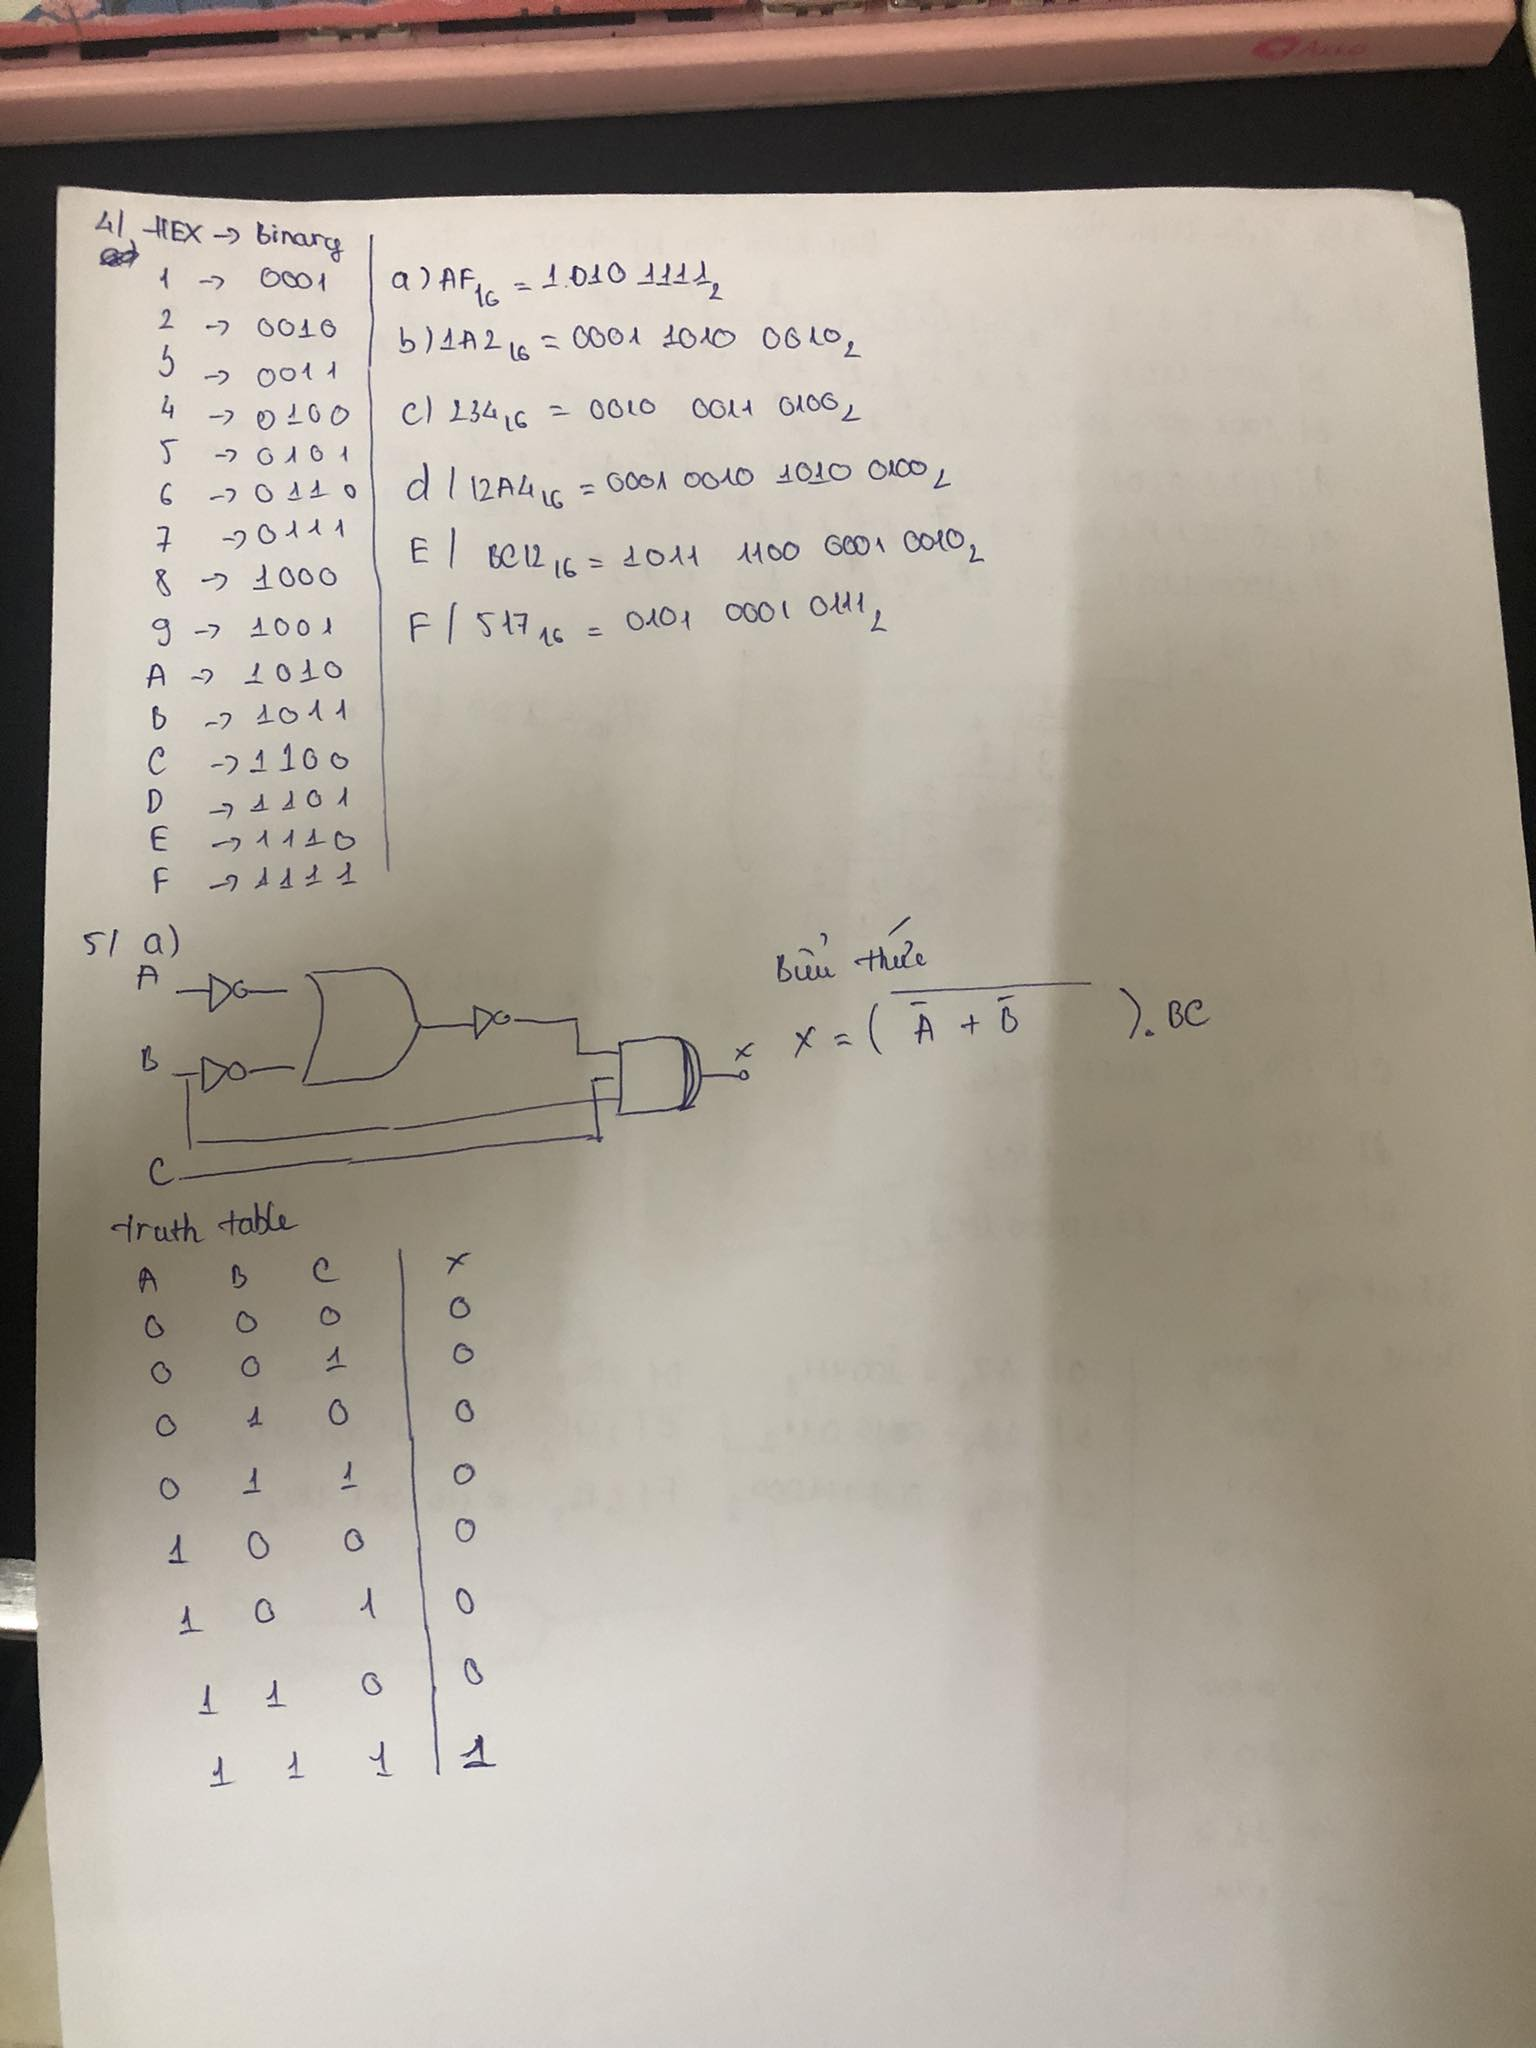 Asus
4/ HEX → binary
1 → 0001
2 → 0010
3 → 0011
4 → 0100
5 → 0101
6 → 0110
7 → 0111
8 → 1000
9 → 1001
A → 1010
B → 1011
C → 1100
D → 1101
E → 1110
F → 1111
a) AF₁₆ = 1010 1111₂
b) 1A2₁₆ = 0001 1010 0010₂
c) 234₁₆ = 0010 0011 0100₂
d/ 12A4₁₆ = 0001 0010 1010 0100₂
E/ BC12₁₆ = 1011 1100 0001 0010₂
F/ 517₁₆ = 0101 0001 0111₂
5/ a)
A
B
C
x
Biểu thức
x = (\overline{Ā + B̄}).BC
truth table
A B C | x
0 0 0 | 0
0 0 1 | 0
0 1 0 | 0
0 1 1 | 0
1 0 0 | 0
1 0 1 | 0
1 1 0 | 0
1 1 1 | 1